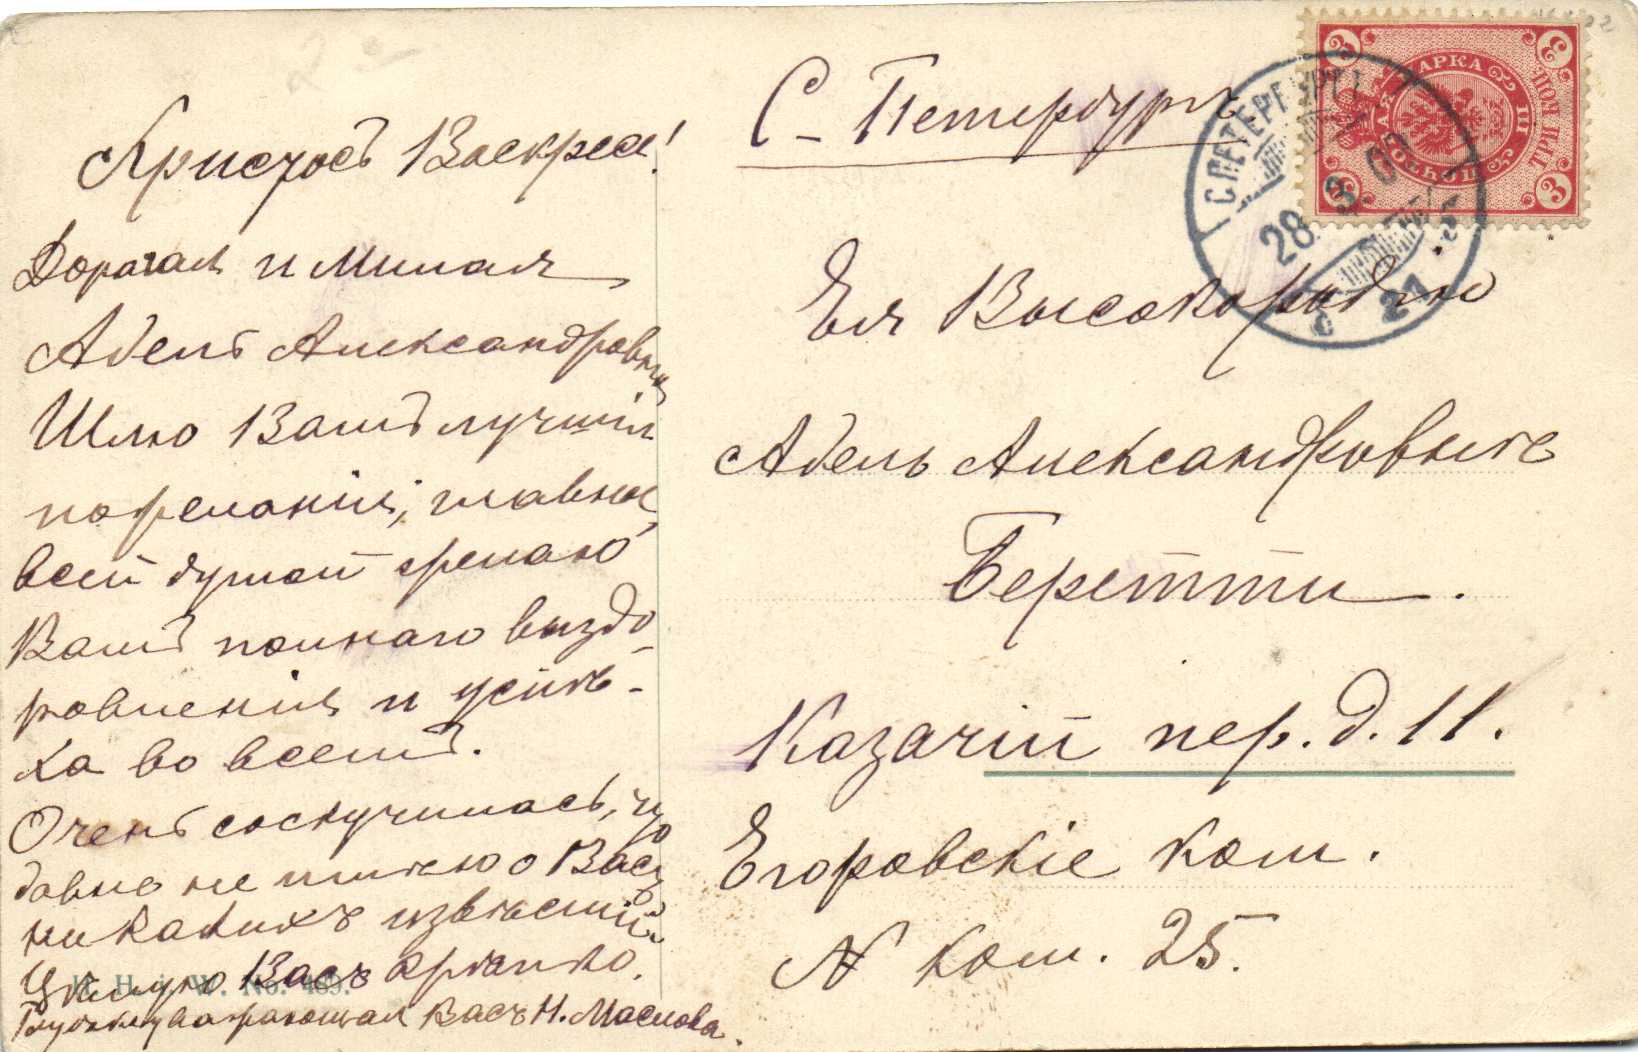 Христосъ Воскресе!
Дорогая и милая
Адель Александровна
Шлю Вамъ лучшія
пожеланія, главное,
всей душой желаю
Вамъ полнаго выздо-
ровленія и успѣ-
ха во всемъ.
Очень соскучилась, что
давно не имѣю о Васъ
никакихъ извѣстій.
Цѣлую Васъ крѣпко.
Глубокоуважающая Васъ Н. Маслова.
С-Петербургъ.
Ея Высокородію
Адель Александровнѣ
Беретти.
Казачій пер. д. 11.
Егоровскіе ком.
N ком. 25.
С.ПЕТЕРБУРГЪ
28. 3.
21
МАРКА
ПОЧТОВ
ТРИ КОП
3
3
3
3